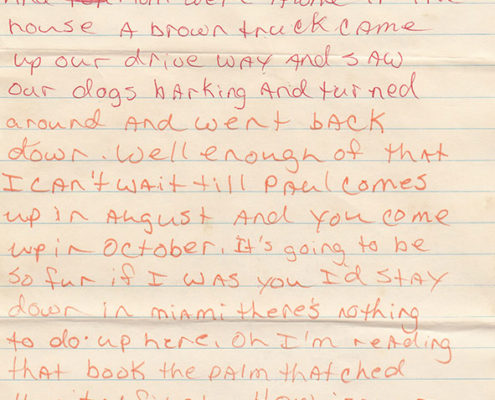 mom were home in the
house A brown truck came
up our drive way And saw
our dogs bArking And turned
around And went bACK
down. Well enough of that
I CAn't wAit till PAul comes
up in August And you come
up in October. It's going to be
so fun if I wAs you I'd stAy
down in miami there's nothing
to do up here. Oh I'm reAding
thAt book the pAlm thAtched